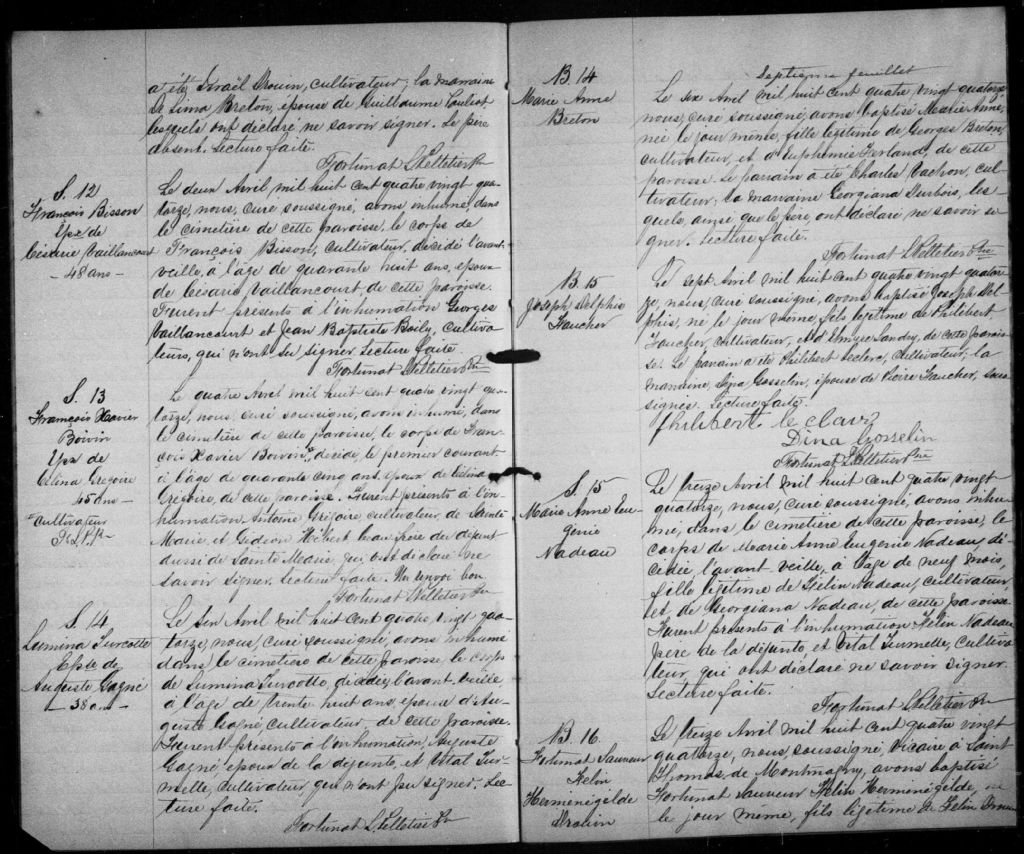 a été Israël Drouin, cultivateur; la marraine
Delima Breton, épouse de Guillaume Pouliot
lesquels ont déclaré ne savoir signer. Le père
absent. Lecture faite.
Fortunat L Pelletier Ptre
S. 12
François Bisson
Epx de
Césarie Vaillancourt
- 48 ans -
Le deux Avril mil huit cent quatre vingt qua-
torze, nous, curé soussigné, avons inhumé, dans
le cimetière de cette paroisse, le corps de
François Bisson, cultivateur, décédé l'avant
veille, à l'âge de quarante huit ans, époux
de Césarie Vaillancourt, de cette paroisse.
Furent présents à l'inhumation Georges
Vaillancourt et Jean Baptiste Boily, cultiva-
teurs, qui n'ont su signer. Lecture faite.
Fortunat L Pelletier Ptre
S. 13
François Xavier
Boivin
Epx de
Celina Gregoire
45 ans -
+ cultivateur
F. L. P. Ptre
Le quatre Avril mil huit cent quatre vingt qua-
torze, nous, curé soussigné, avons inhumé, dans
le cimetière de cette paroisse, le corps de Fran-
çois Xavier Boivin + décédé, le premier courant
à l'âge de quarante cinq ans, époux de Celina
Grégoire, de cette paroisse. Furent présents à l'in-
humation Antoine Grégoire, cultivateur, de Sainte
Marie, et Gédéon Hébert beau frère du défunt
aussi de Sainte Marie, qui ont déclaré ne
savoir signer. Lecture faite. Un renvoi bon.
Fortunat L Pelletier Ptre
S. 14
Lumina Turcotte
Epse de
Auguste Gagné
- 38 ans -
Le six Avril mil huit cent quatre vingt qua-
torze, nous, curé soussigné, avons inhumé
dans le cimetière de cette paroisse le corps
de Lumina Turcotte, décédée l'avant veille
à l'âge de trente huit ans, épouse d'Au-
guste Gagné, cultivateur, de cette paroisse.
Furent présents à l'inhumation, Auguste
Gagné, époux de la défunte, et Vital Tur-
melle, cultivateur, qui n'ont pu signer. Lec-
ture faite.
Fortunat L Pelletier Ptre
Septième feuillet
B. 14
Marie Anne
Breton
Le six Avril mil huit cent quatre vingt quatorze,
nous, curé soussigné, avons baptisé Marie Anne,
née le jour même, fille légitime de Georges Breton,
cultivateur, et d'Euphémie Ferland, de cette
paroisse. Le parrain a été Charles Vachon, cul-
tivateur; la marraine Georgiana Nurbois, les-
quels, ainsi que le père, ont déclaré ne savoir si-
gner. Lecture faite.
Fortunat L Pelletier Ptre
B. 15
Joseph Delphis
Faucher
Le sept Avril mil huit cent quatre vingt quator-
ze, nous, curé soussigné, avons baptisé Joseph Del-
phis, né le jour même, fils légitime de Philibert
Faucher, cultivateur, et d'Elmire Landry, de cette parois-
se. Le parrain a été Philibert Leclerc, cultivateur; la
marraine, Dina Gosselin, épouse de Pierre Faucher, sous-
signés. Lecture faite.
Philibert le clavz
Dina Gosselin
Fortunat L Pelletier Ptre
S. 15
Marie Anne Eu-
génie
Nadeau
Le treize Avril mil huit cent quatre vingt
quatorze, nous, curé soussigné, avons inhu-
mé, dans le cimetière de cette paroisse, le
corps de Marie Anne Eugénie Nadeau, dé-
cédée l'avant veille, à l'âge de neuf mois,
fille légitime de Félix Nadeau, cultivateur
et de Georgiana Nadeau, de cette paroisse.
Furent présents à l'inhumation Félix Nadeau
père de la défunte, et Vital Turmelle, cultiva-
teur, qui ont déclaré ne savoir signer.
Lecture faite.
Fortunat L Pelletier Ptre
B. 16
Fortunat Sauveur
Félix
Herménégilde
Drouin
Le treize Avril mil huit cent quatre vingt
quatorze, nous soussigné, vicaire à Saint
Thomas de Montmagny, avons baptisé
Fortunat Sauveur Félix Herménégilde, né
le jour même, fils légitime de Félix Drouin